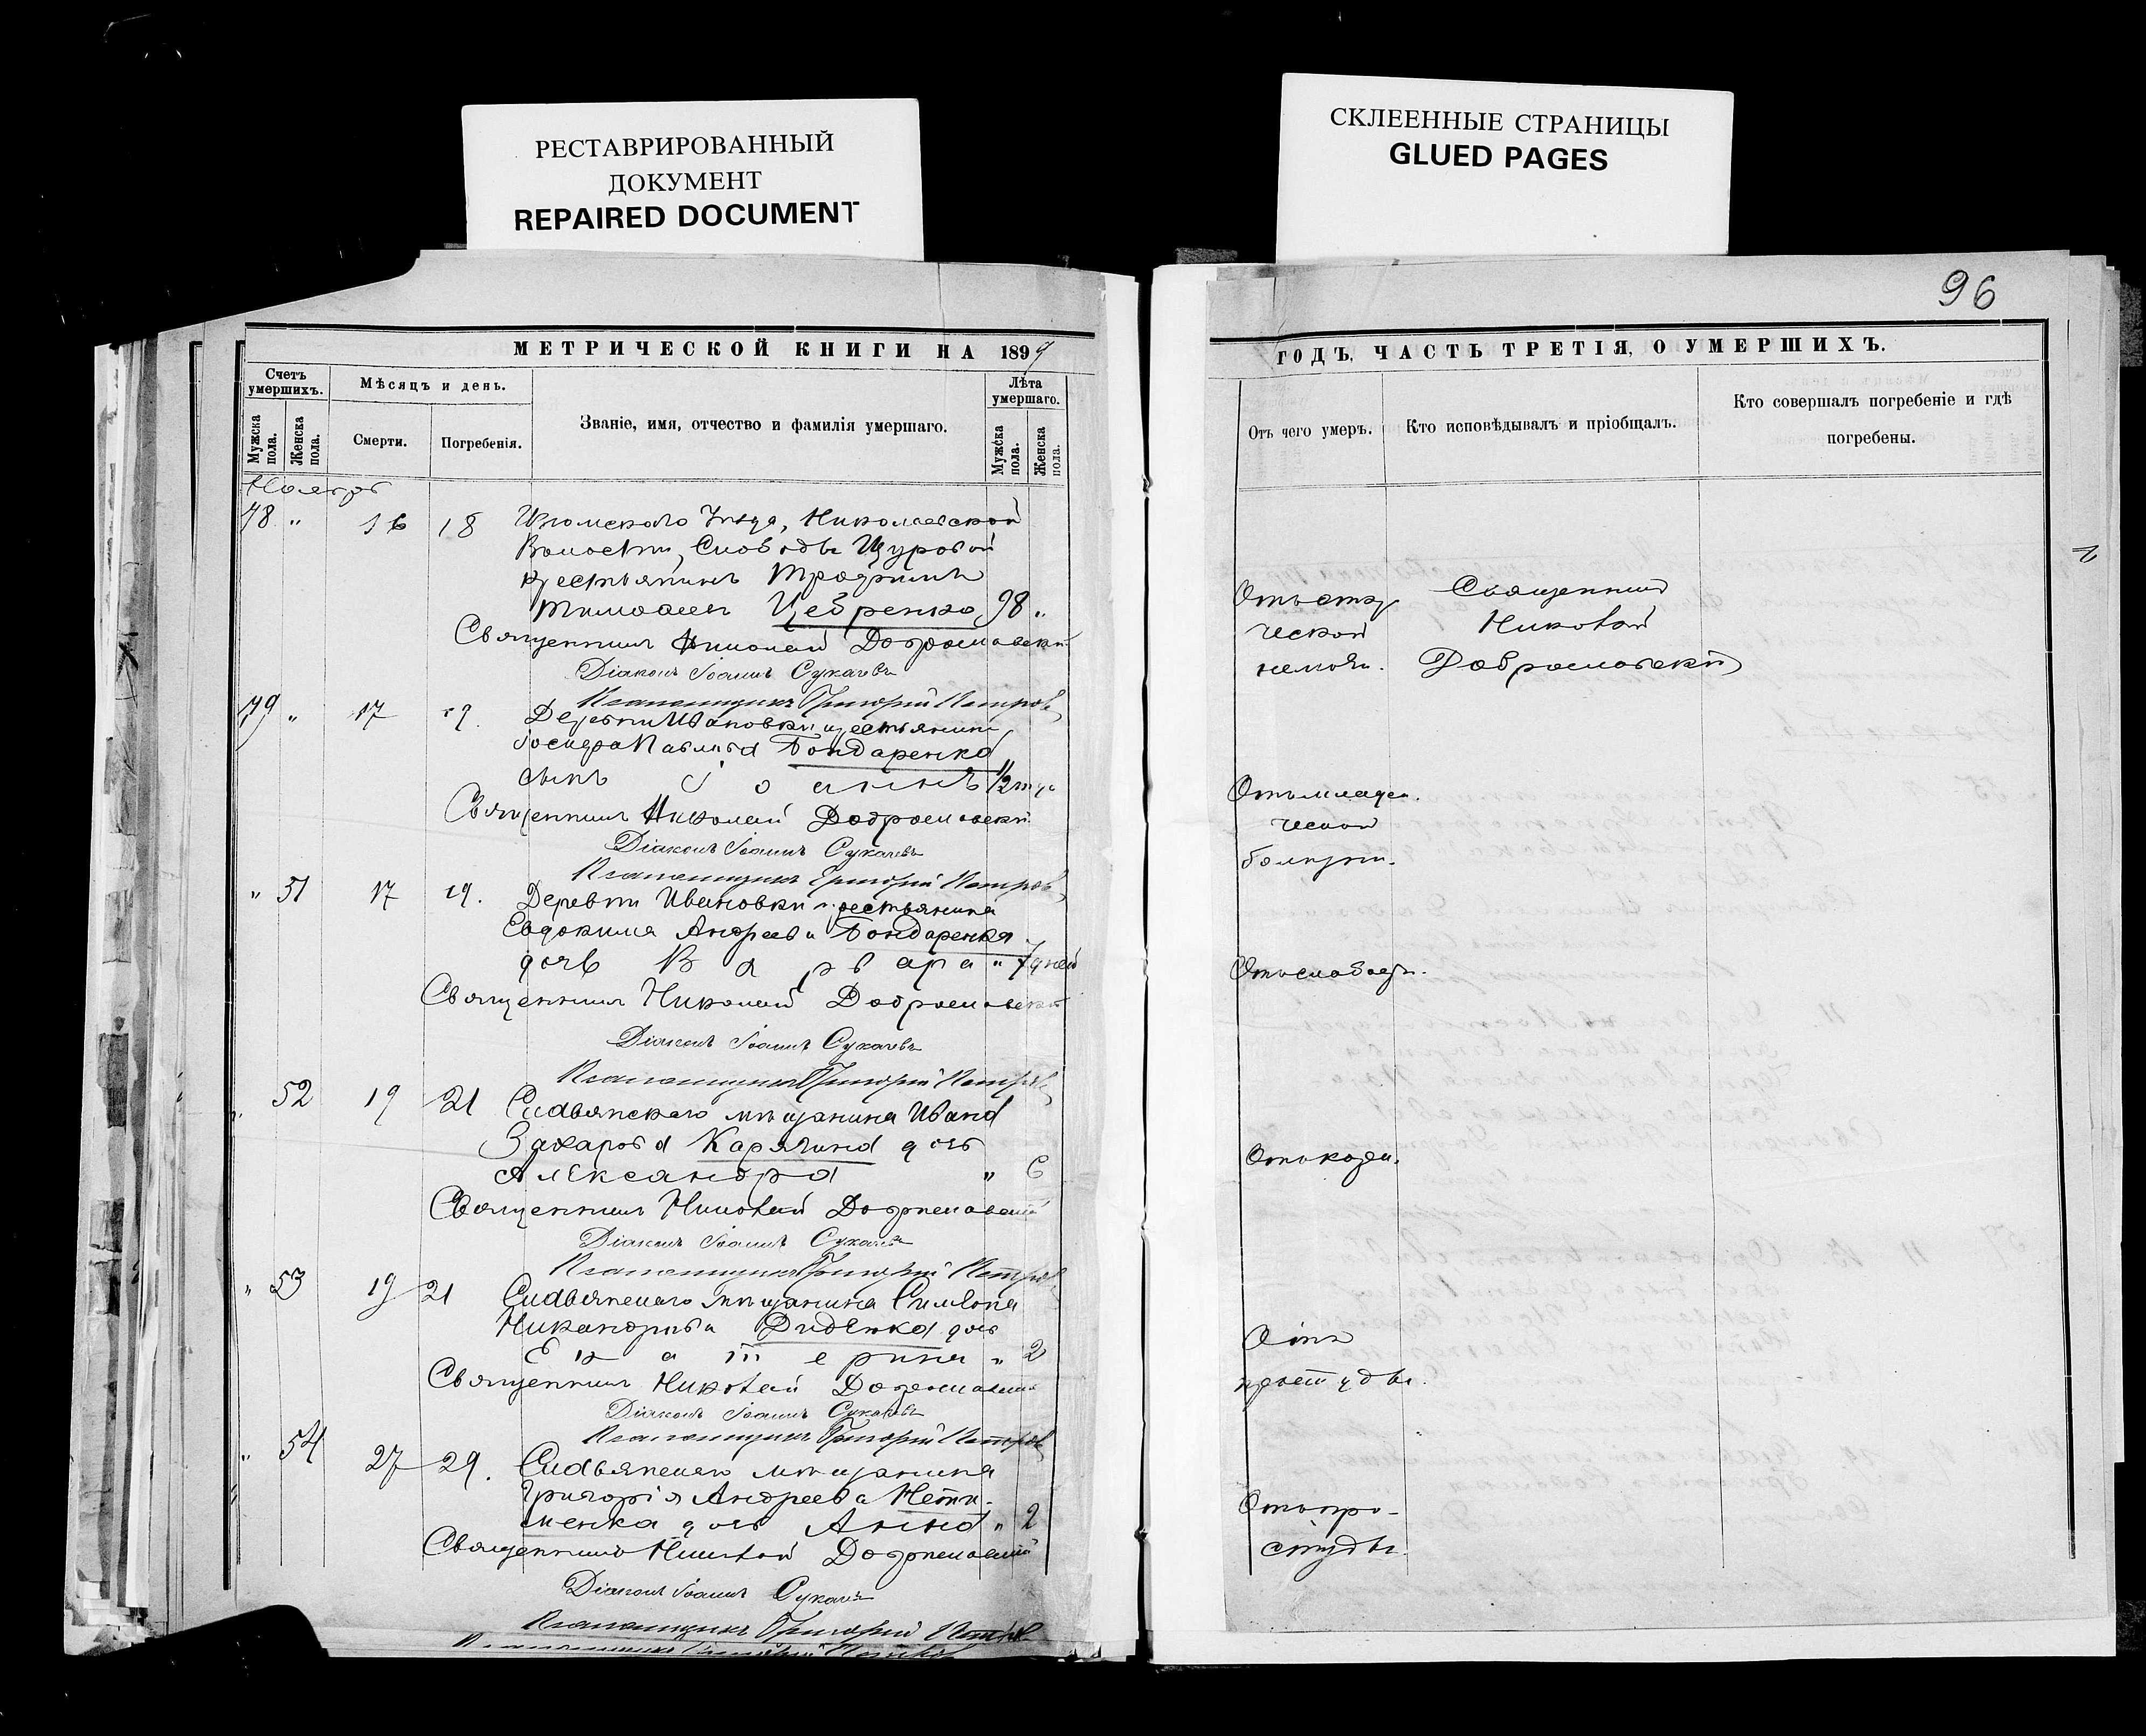 РЕСТАВРИРОВАННЫЙ
ДОКУМЕНТ
REPAIRED DOCUMENT
СКЛЕЕННЫЕ СТРАНИЦЫ
GLUED PAGES
МЕТРИЧЕСКОЙ КНИГИ НА 1899
Счетъ умершихъ.
Мужска пола.
Женска пола.
Мѣсяцъ и день.
Смерти.
Погребенія.
Званіе, имя, отчество и фамилія умершаго.
Лѣта умершаго.
Мужска пола.
Женска пола.
Ноябрь
48 " 16 18 Изюмскаго Уѣзда, Николаевской
Волости, Слободы Щуровой
крестьянинъ Трофимъ
Тимофеевъ Цебренко 98 "
Священникъ Николай Доброславскій
Діаконъ Іоаннъ Сукачевъ
Псаломщикъ Григорій Петровъ
49 " 17 19. Деревни Ивановки крестьянина
Іосифа Павлова Бондаренка
сынъ Іоаннъ 1/2 года
Священникъ Николай Доброславскій
Діаконъ Іоаннъ Сукачевъ
Псаломщикъ Григорій Петровъ
" 51 17 19. Деревни Ивановки крестьянина
Евдокима Андреева Бондаренка
дочь Варвара " 7 дней
Священникъ Николай Доброславскій
Діаконъ Іоаннъ Сукачевъ
Псаломщикъ Григорій Петровъ
" 52 19 21 Славянскаго мѣщанина Ивана
Захарова Карячина дочь
Александра " 6
Священникъ Николай Доброславскій
Діаконъ Іоаннъ Сукачевъ
Псаломщикъ Григорій Петровъ
" 53 19 21 Славянскаго мѣщанина Симеона
Никандрова Диденка дочь
Екатерина " 2
Священникъ Николай Доброславскій
Діаконъ Іоаннъ Сукачевъ
Псаломщикъ Григорій Петровъ
" 54 27 29. Славянскаго мѣщанина
Григорія Андреева
дочь Анна " 2
Священникъ Николай Доброславскій
Діаконъ Іоаннъ Сукачевъ
Псаломщикъ Григорій Петровъ
96
ГОДЪ, ЧАСТЬ ТРЕТІЯ, О УМЕРШИХЪ.
Отъ чего умеръ.
Кто исповѣдывалъ и пріобщалъ.
Кто совершалъ погребеніе и гдѣ
погребены.
Отъ старческой
немощи.
Священникъ
Николай
Доброславскій
Отъ младенческой
болезни.
Отъ слабости.
Отъ кори.
Отъ
простуды.
Отъ про-
студы.